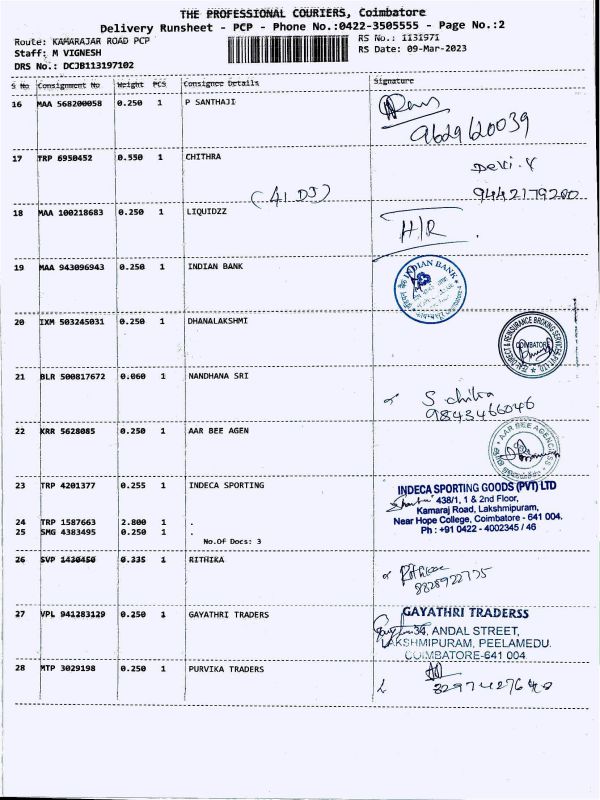 THE PROFESSIONAL COURIERS, Coimbatore
Delivery Runsheet - PCP - Phone No.:0422-3505555 - Page No.:2
Route: KAMARAJAR ROAD PCP
Staff: M VIGNESH
DRS No.: DCJB113197102
RS No.: 1131971
RS Date: 09-Mar-2023
S No Consignment No Weight PCS Consignee Details Signature
16 MAA 568200058 0.250 1 P SANTHAJI
9629620039
17 TRP 6950452 0.550 1 CHITHRA
Devi. Y
9442179200
(41 DJ)
18 MAA 100218683 0.250 1 LIQUIDZZ
H/R
19 MAA 943096943 0.250 1 INDIAN BANK
INDIAN BANK
20 IXM 503245031 0.250 1 DHANALAKSHMI
DIRECT & REINSURANCE BROKING SERVICES PVT LTD
COIMBATORE
21 BLR 500817672 0.060 1 NANDHANA SRI
S chitra
9843466046
22 KRR 5628085 0.250 1 AAR BEE AGEN
AAR BEE AGENCIES
23 TRP 4201377 0.255 1 INDECA SPORTING
INDECA SPORTING GOODS (PVT) LTD
438/1, 1 & 2nd Floor,
Kamaraj Road, Lakshmipuram,
Near Hope College, Coimbatore - 641 004.
Ph : +91 0422 - 4002345 / 46
24 TRP 1587663 2.800 1 .
25 SMG 4383495 0.250 1 .
No.Of Docs: 3
26 SVP 1430450 0.335 1 RITHIKA
8828922735
27 VPL 941283129 0.250 1 GAYATHRI TRADERS
GAYATHRI TRADERSS
34, ANDAL STREET,
LAKSHMIPURAM, PEELAMEDU.
COIMBATORE-641 004
28 MTP 3029198 0.250 1 PURVIKA TRADERS